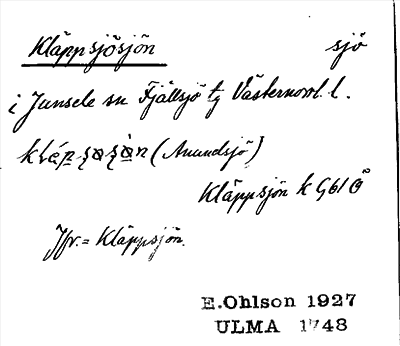 Kläppsjösjön sjö
i Junsele sn Fjällsjö tg Västernorrl. l.
(Anundsjö)
Kläppsjön k G61
Jfr. = Kläppsjön.
E.Ohlson 1927
ULMA 1748